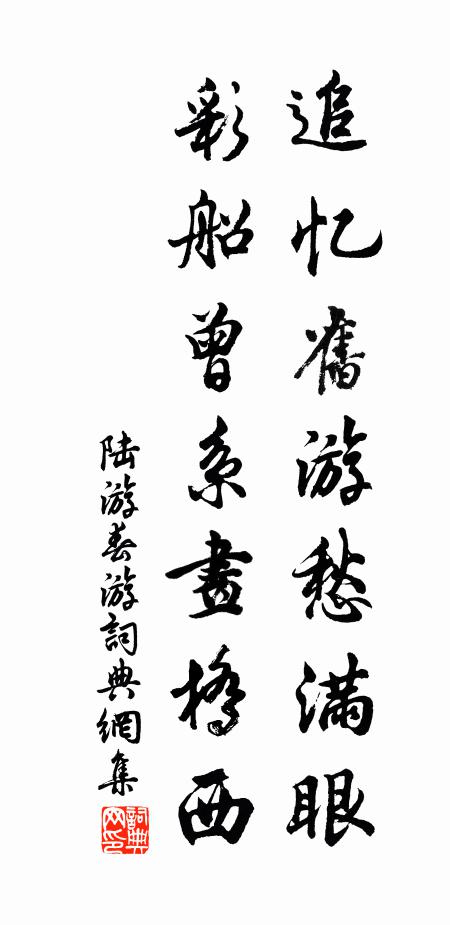 追忆舊游愁满眼
彩船曾系畫橋西
陆游春游詞典網集
詞典
网印